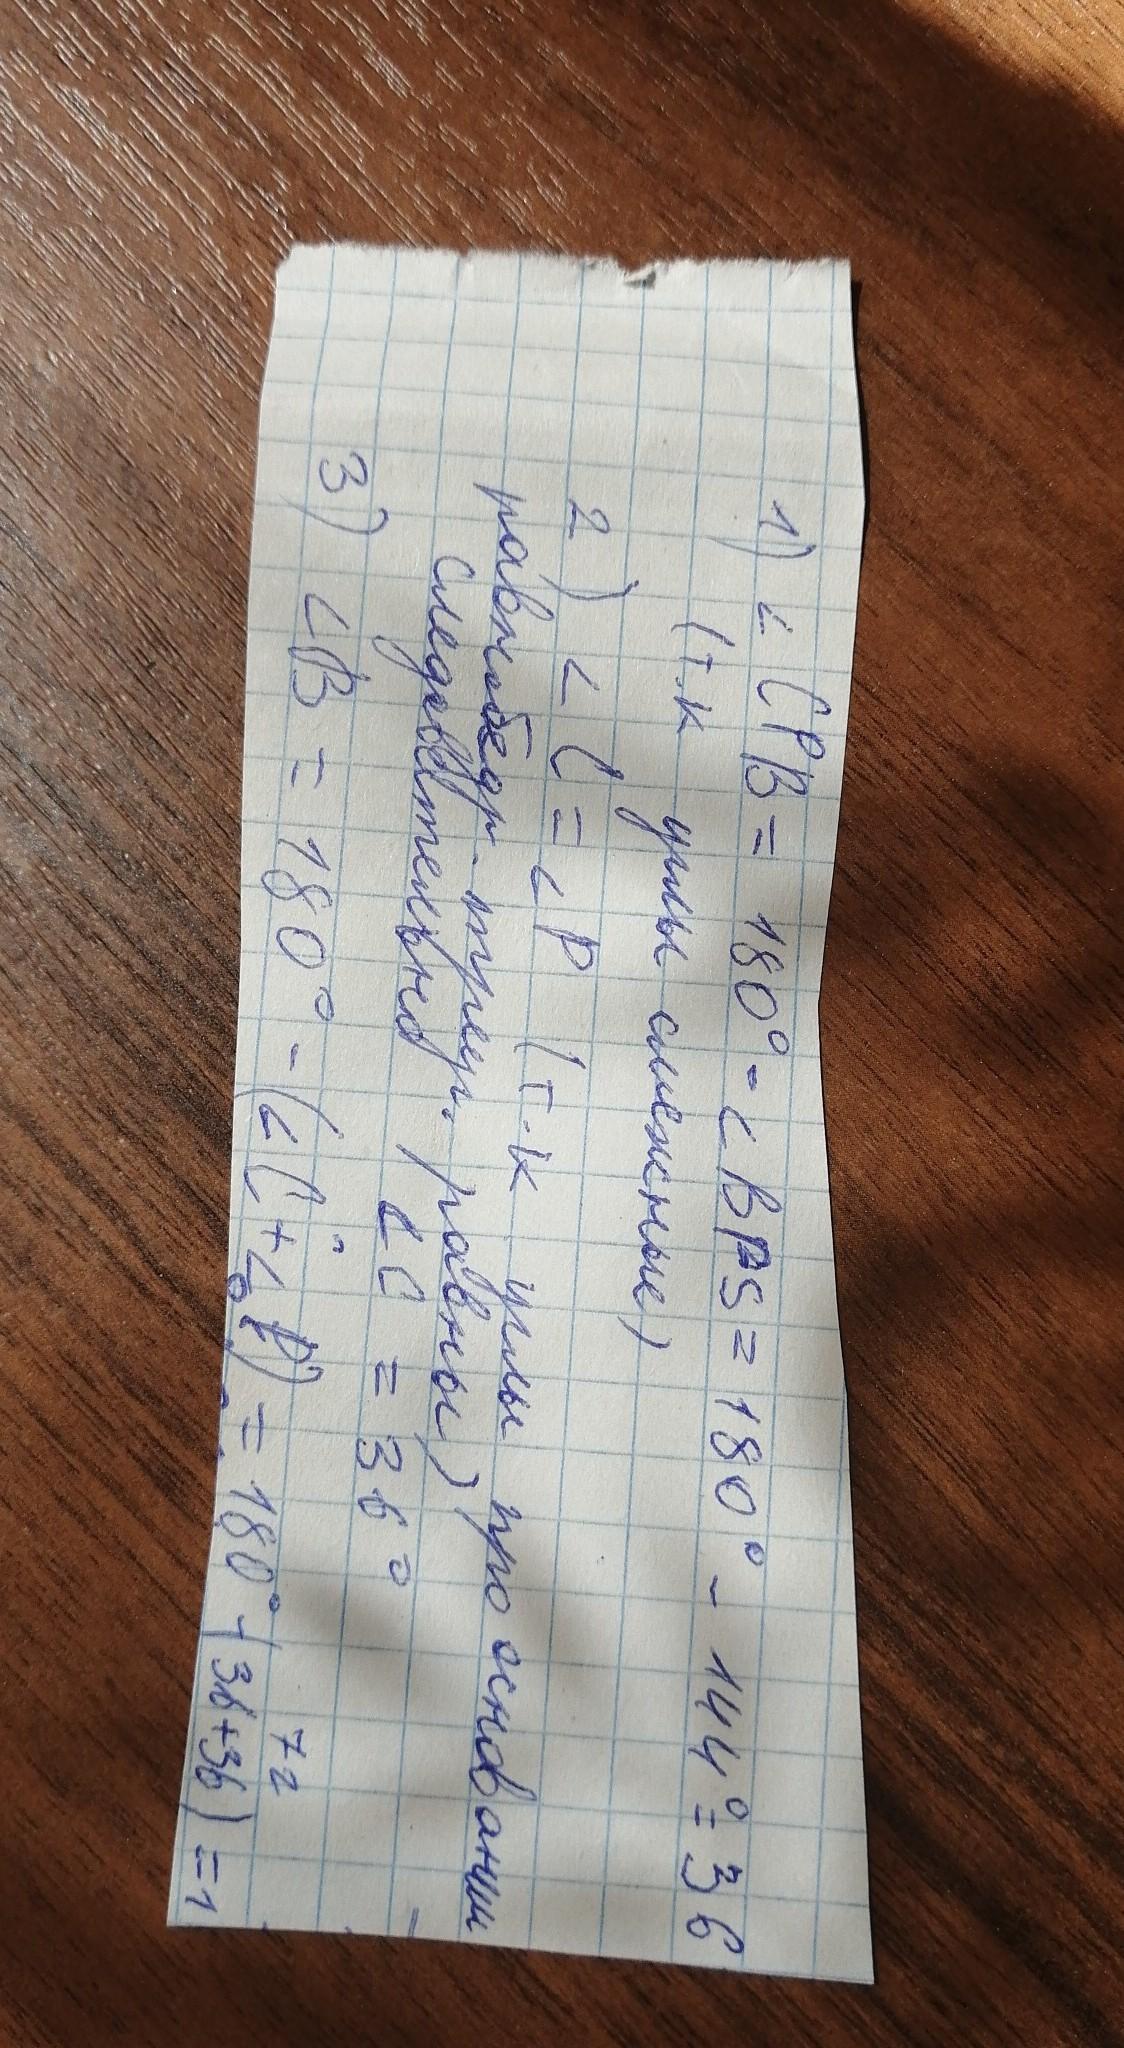 1) ∠ CPB = 180° - ∠ BPS = 180° - 144° = 36
(т.к углы смежные)
2) ∠ C = ∠ P (т.к углы про основании
равнобедр. треуг. равны)
следовательно ∠C = 36°
3) ∠B = 180° - (∠C + ∠P) = 180° - (36+36) = 1
72